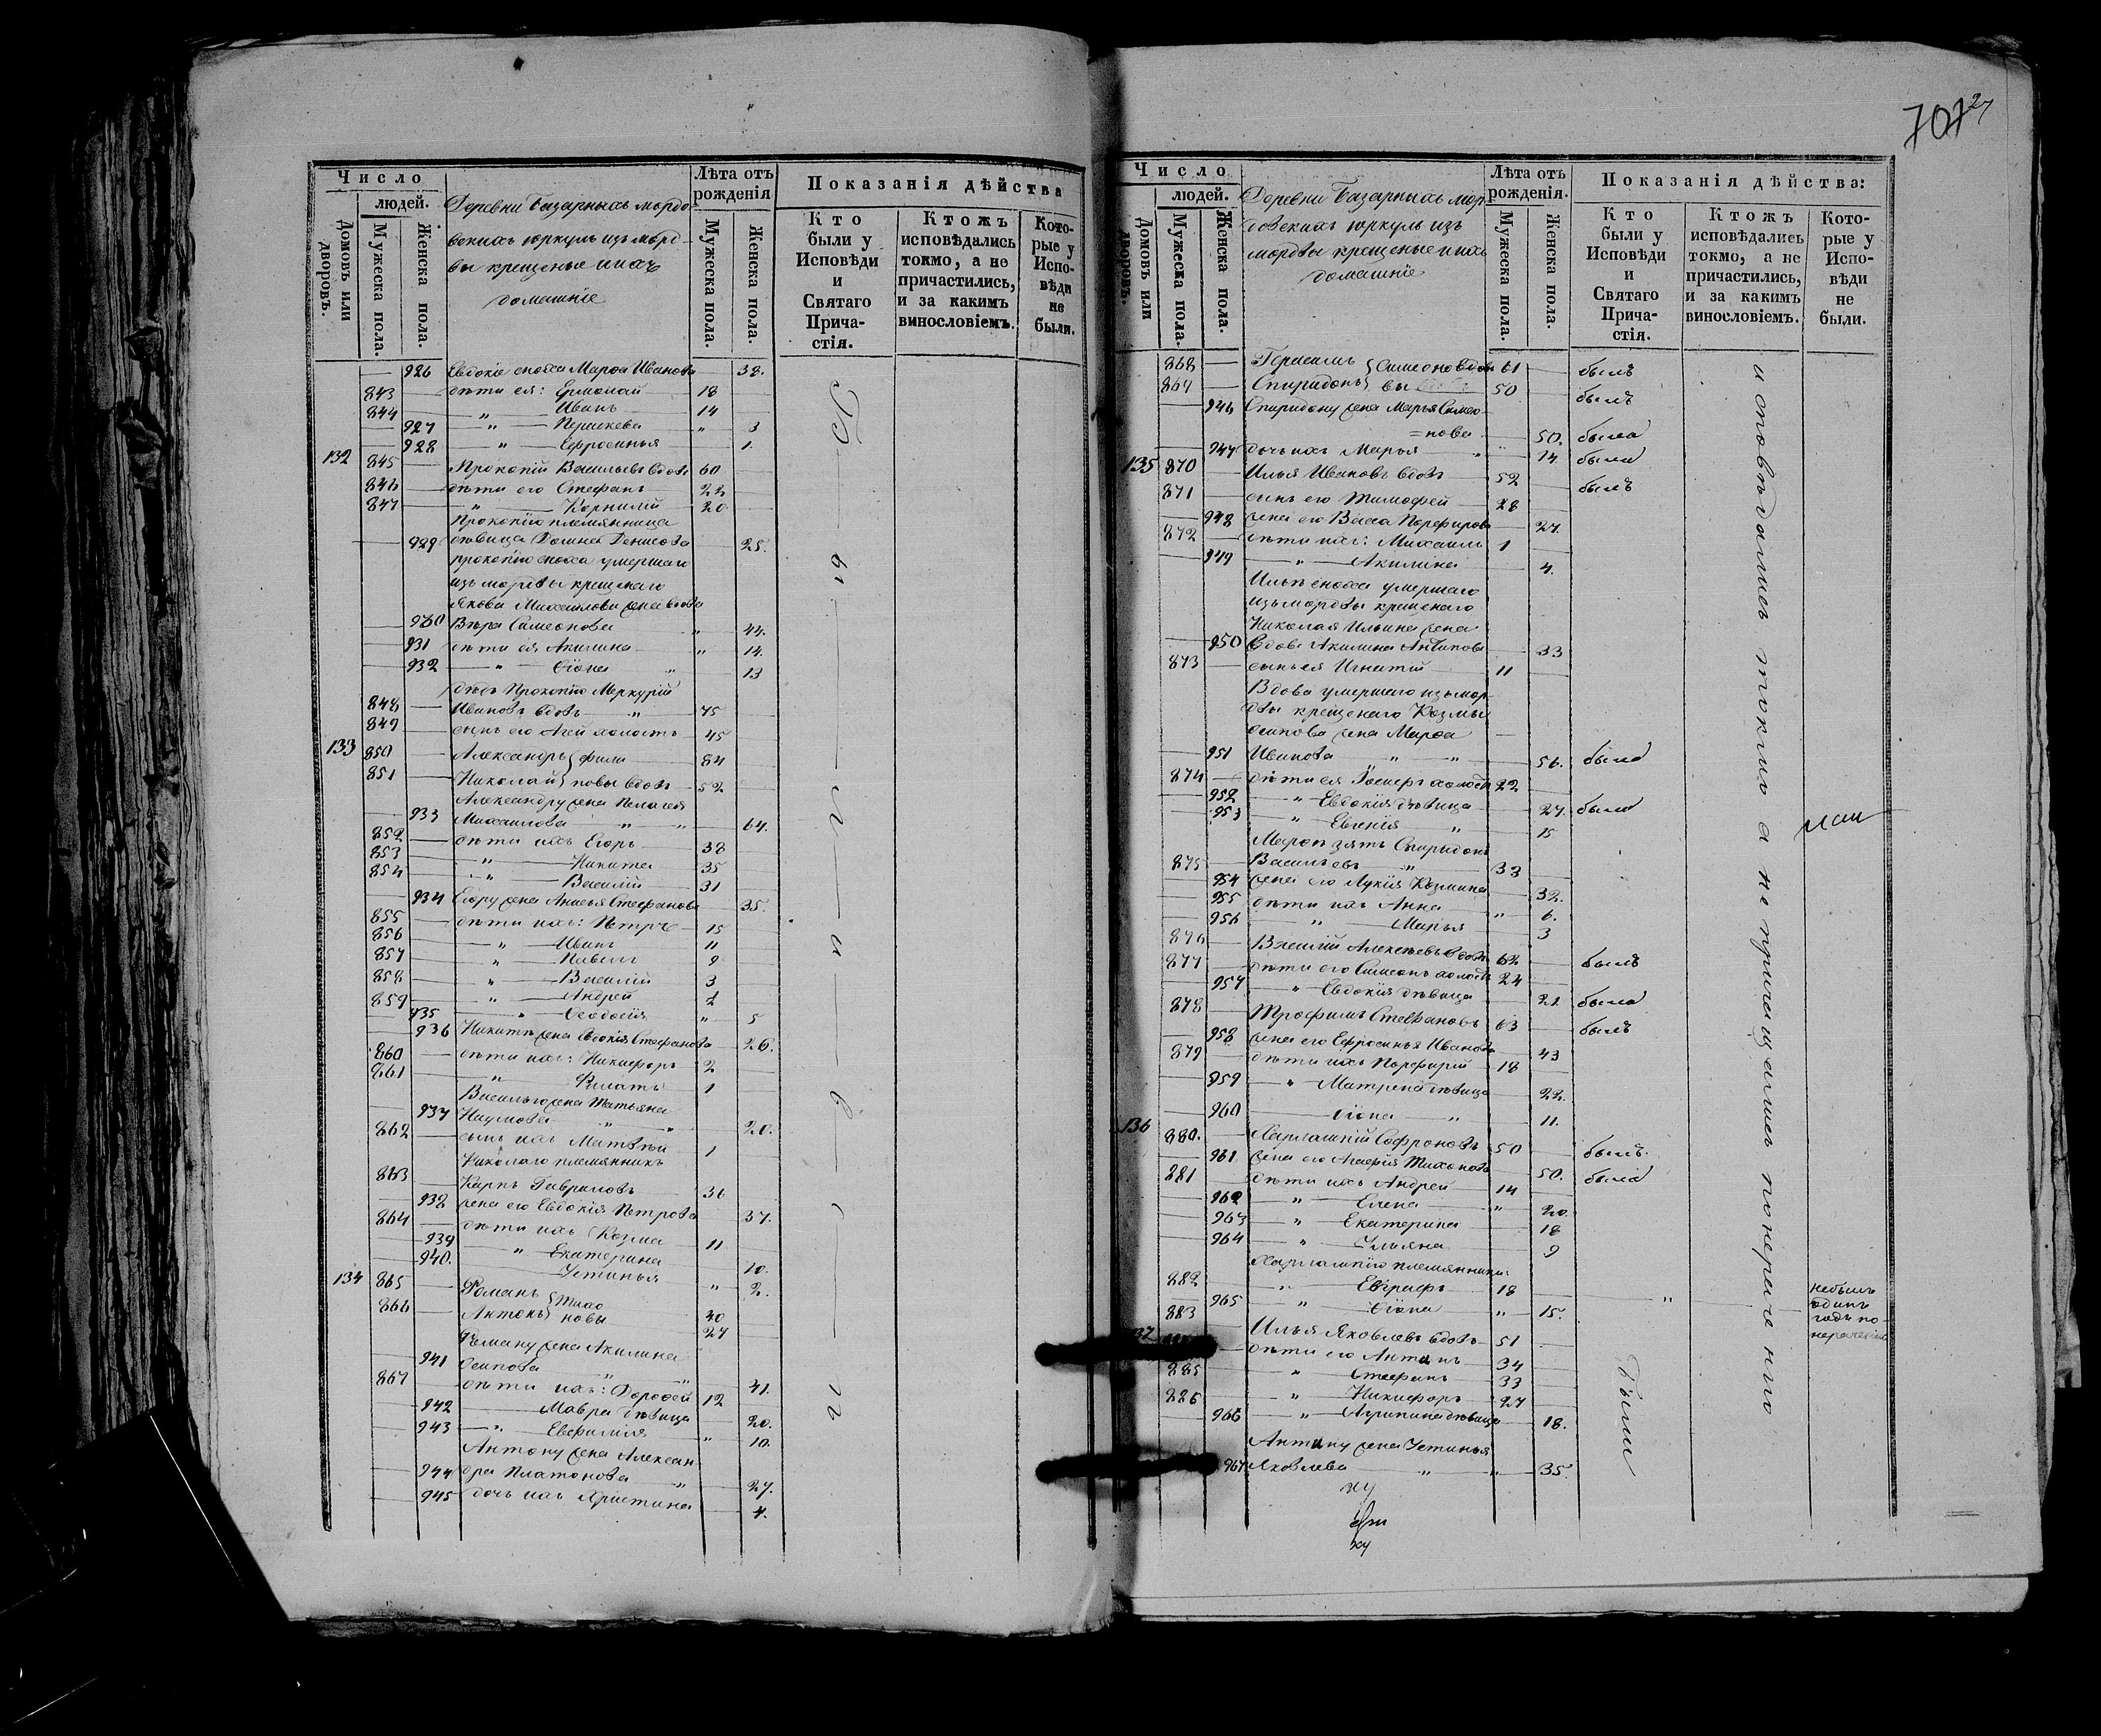 707
Число
людей.
Домовъ или дворовъ.
Мужеска пола.
Женска пола.
Деревни Базарныхъ мордо-
вскихъ юркуль изъ морд-
вы крещеные и ихъ
домашніе
Лѣта отъ рожденія
Мужеска пола.
Женска пола.
Показанія дѣйства
Кто были у Исповѣди и Святаго Прича-стія.
Ктожъ исповѣдались токмо, а не причастились, и за какимъ винословіемъ.
Кото-рые у Испо-вѣди не были.
926 Евдокіе сноха Марѳа Иванова 38.
843 дѣти ея: Ермолай 18
844 „ Иванъ 14
927 „ Параскева „ 3
928 „ Ефросинья 1
132 845 Прокопій Васильевъ вдовъ 60
846 дѣти его Стефанъ 22
847 „ Корнилій 20
Прокопію племянница
929 дѣвица Домна Денисова 25.
Прокопію сноха умершаго
изъ мордвы крещенаго
Якова Михаилова жена вдова
930 Вѣра Симеонова „ 44.
931 дѣти ея Акилина „ 14.
932 „ Ѳіона „ 13
дядь Прокопію Меркурій
848 Ивановъ вдовъ „ 75
849 сынъ его Агей холостъ 45
133 850 Александръ фили 84
851 Николай повы вдовъ 52
Александру жена Пелагея
933 Михаилова „ „ 64.
852 дѣти ихъ Егоръ 38
853 „ Никита 35
854 „ Василій 31
934 Егору жена Анисья Стефанова 35.
855 дѣти ихъ: Петръ 15
856 „ Иванъ 11
857 „ Павелъ 9
858 „ Василій 3
859 „ Андрей
935 „ Ѳеодосія „ 5
936 Никитѣ жена Евдокія Стефанова 26.
860 дѣти ихъ: Никифоръ 2
861 „ Филатъ 1
Василью жена Татьяна
937 Наумова „ „ 20.
862 сынъ ихъ Матвѣй 1
Николаю племянникъ
863 Карпъ Гавриловъ 36
938 жена его Евдокія Петрова 37.
864 дѣти ихъ Козма 11
939 „ Екатерина 10.
940. Устинья „ 2.
134 865 Романъ Тихо 40
866 Антонъ новы 27
Роману жена Акилина
941 Осипова „ „ 41.
867 дѣти ихъ: Дороѳей 12
942 Мавра дѣвица 20.
943 „ Евфимія „ 10.
Антону жена Алексан-
944 дра Платонова „ 27.
945 дочь ихъ Христина 4.
Число
людей.
Домовъ или дворовъ.
Мужеска пола.
Женска пола.
Деревни Базарныхъ мор-
довскихъ юркуль изъ
мордвы крещеные и ихъ
домашніе
Лѣта отъ рожденія.
Мужеска пола.
Женска пола.
Показанія дѣйства:
Кто были у Исповѣди и Святаго Прича-стія.
Ктожъ исповѣдались токмо, а не причастились, и за какимъ винословіемъ.
Кото-рые у Испо-вѣди не были.
868 Герасимъ Симеоно вдовъ 61 былъ
869 Спиридонъ вы 50 былъ
946 Спиридону жена Марья Симео-
=нова 50. была
947 дочь ихъ Марья „ 14 была
135 870 Илья Ивановъ вдовъ 52 былъ
871 сынъ его Тимофей 28
948 жена его Васса Порфирова 27.
872 дѣти ихъ: Михаилъ 1
949 „ Акилина 4.
Ильѣ сноха умершаго
изъ мордвы крещенаго
Николая Ильина жена
950 вдова Акилина Антипова 33
873 сынъ ея Игнатій 11
Вдова умершаго изъ мор-
двы крещенаго Козмы
Осипова жена Марѳа
951 Иванова „ „ 56. была
874 дѣти ея холостъ 22
952 „ Евдокія дѣвица 27. была
953 „ Евгенія „ 15
Марѳѣ зять Спиридонъ
875 Васильевъ „ 33
954 жена его Лукія Козмина 32.
955 дѣти ихъ Анна „ 6.
956 „ Марья 3
876 Василій Алексѣевъ вдовъ 62 былъ
877 дѣти его Симеонъ холостъ 24
957 „ Евдокія дѣвица 21. была
878 Трофимъ Стефановъ 63 былъ
958 жена его Ефросинья Иванова 43
879 дѣти ихъ Порфирій 18
959 „ Матрена дѣвица 22.
960 Ѳіона „ 11.
136 880. Харлампій Софроновъ 50 былъ.
961 жена его Агафія Тихонова 50. была
881 дѣти ихъ Андрей 14
962 „ Елена „ 20.
963 „ Екатерина 18
964 „ Ульяна 9
Харлампію племянники:
882 „ Евграфъ 18
965 „ Ѳіона „ 15.
883 Илья Яковлевъ вдовъ 51
дѣти его Антипъ 34
885 „ Стефанъ 33
886 „ Никифоръ 27
966 „ Агрипина дѣвица 18.
Антипу жена Устинья
967 Яковлева „ „ 35.
исповѣдались токмо а не причащались по нераченію
небылъ
одинъ
годъ по
нераченію
были